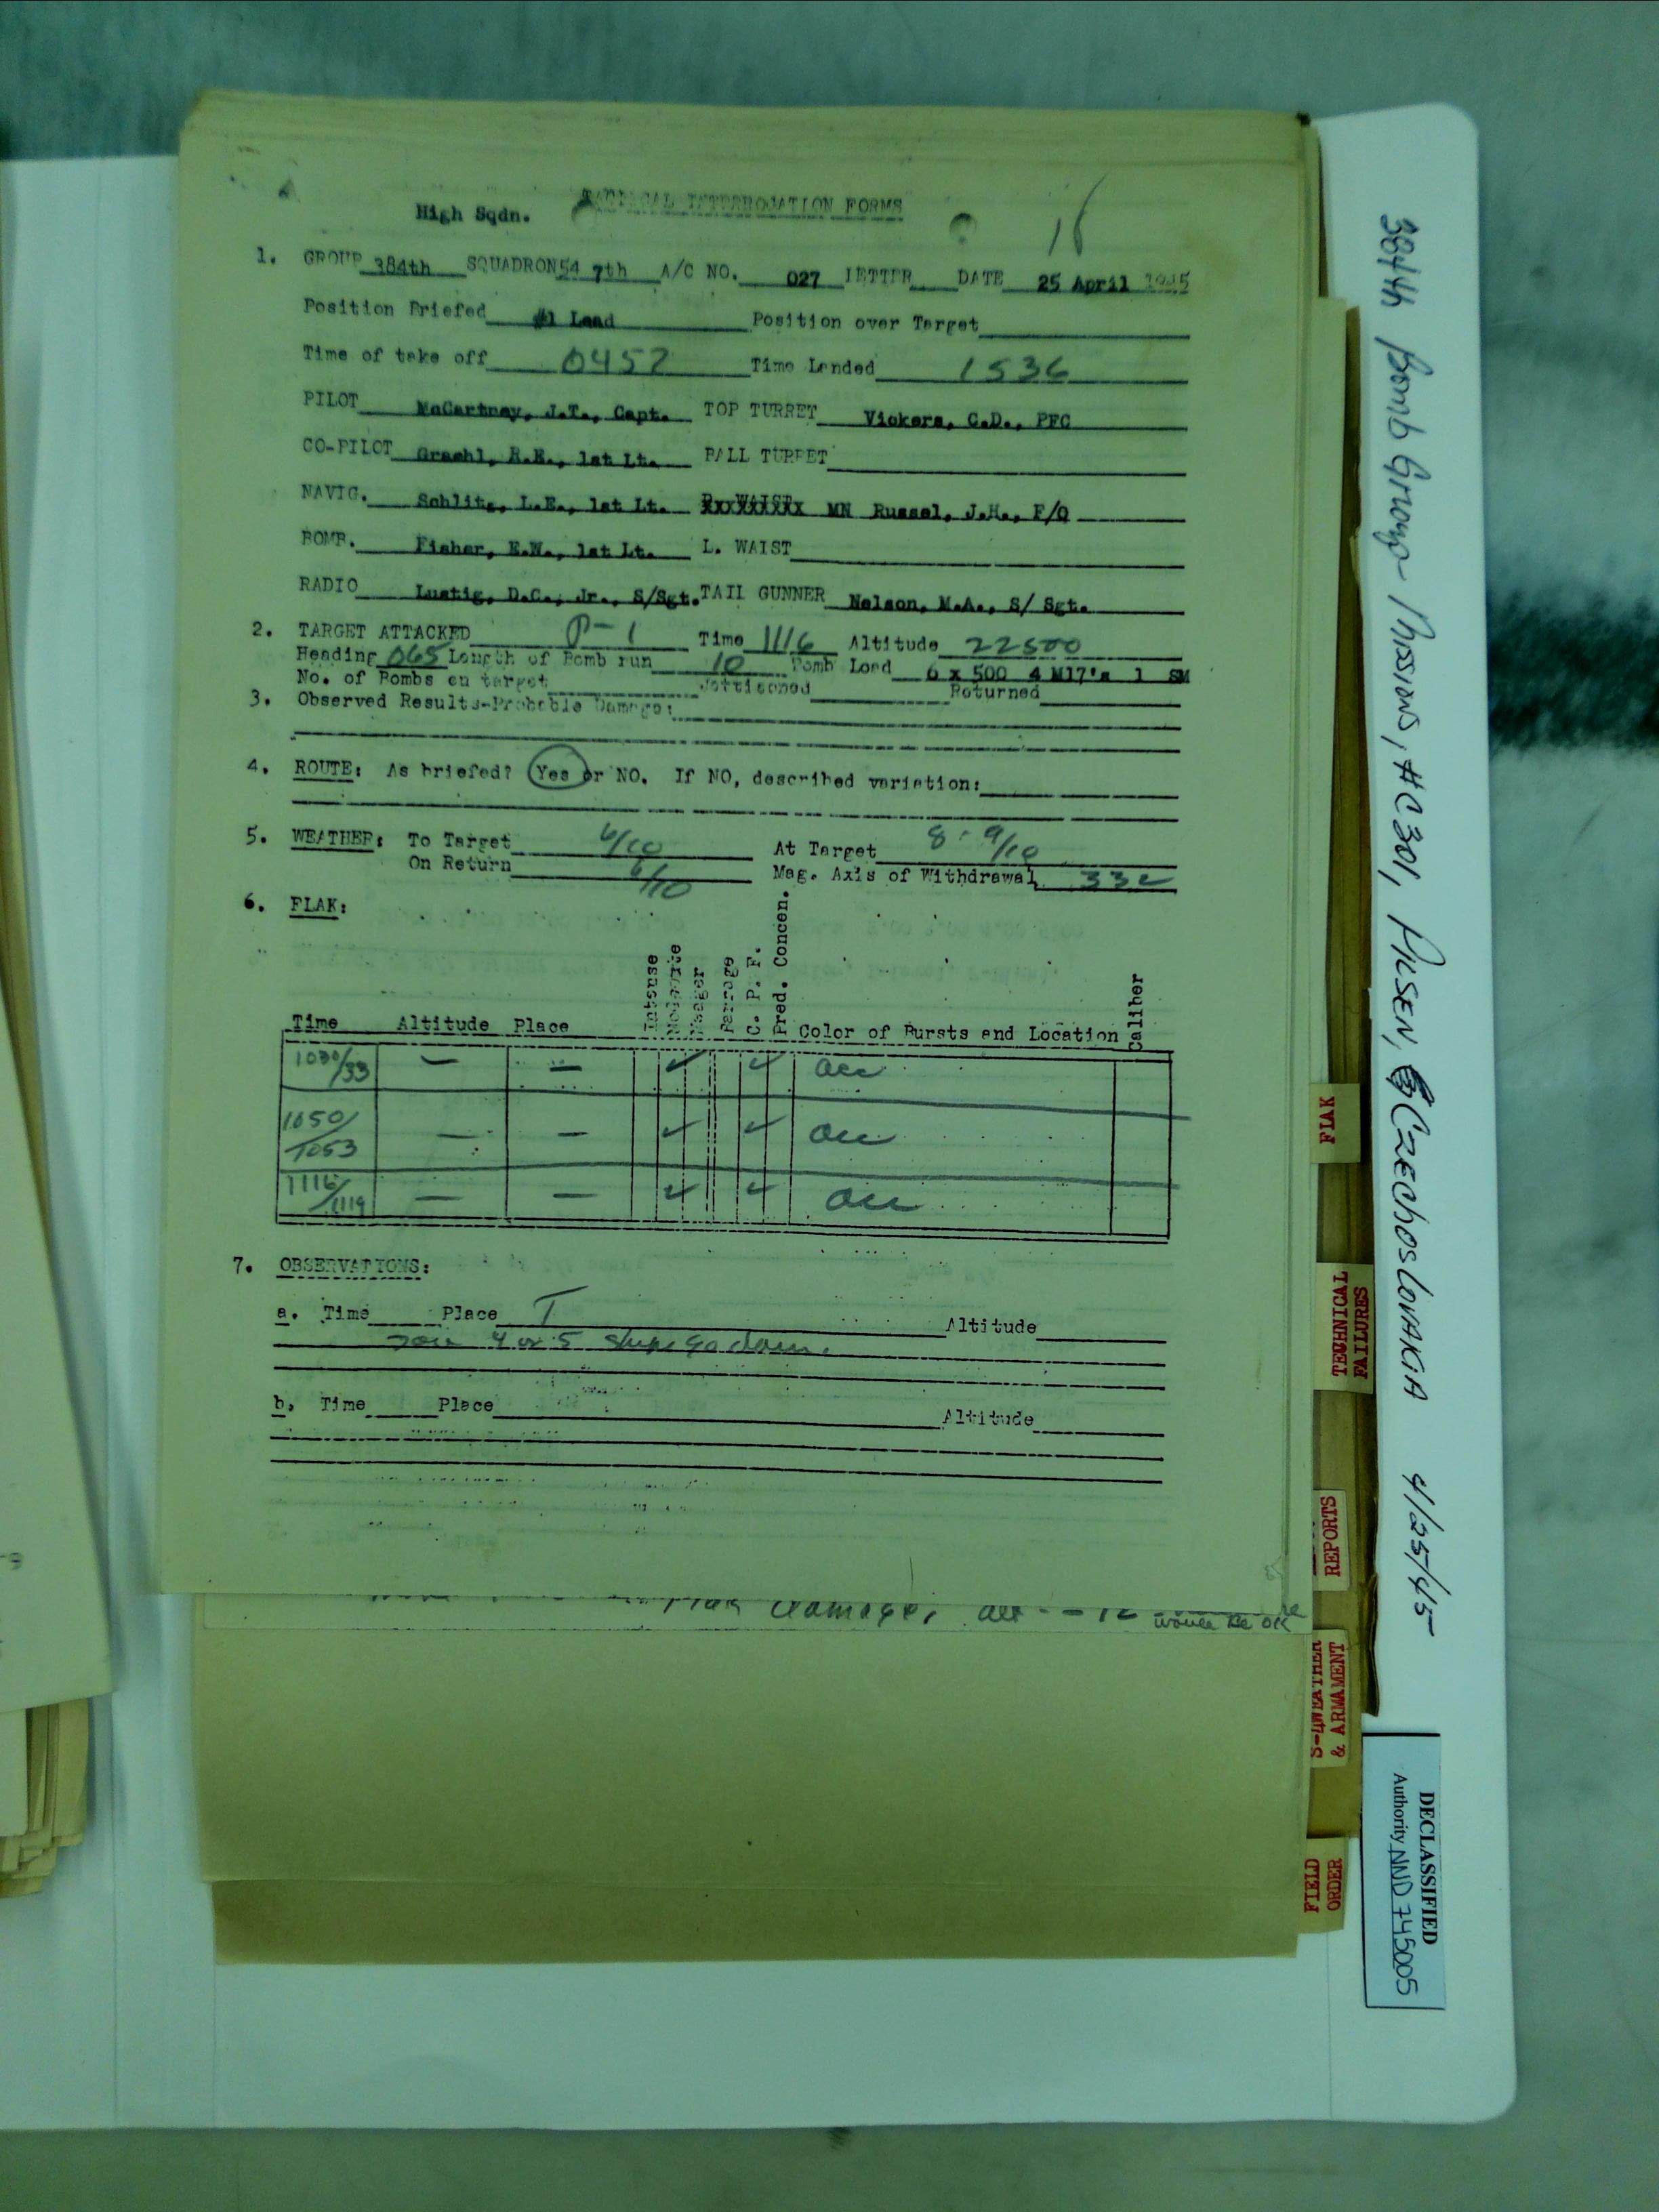 High Sqdn.
TACTICAL INTERROGATION FORMS
1. GROUP 384th SQUADRON 54 7th A/C NO. 027 LETTER DATE 25 April 1945
Position Briefed #1 Lead Position over Target
Time of take off 0452 Time Landed 1536
PILOT McCartney, J.T., Capt. TOP TURRET Vickers, C.D., PFC
CO-PILOT Graehl, R.E., 1st Lt. BALL TURRET
NAVIG. Schlitz, L.E., 1st Lt. R. WAIST MN Russel, J.H., F/O
BOMB. Fisher, E.N., 1st Lt. L. WAIST
RADIO Lustig, D.C., Jr., S/Sgt. TAIL GUNNER Nelson, M.A., S/ Sgt.
2. TARGET ATTACKED P-1 Time 1116 Altitude 22500
Heading 065 Length of Bomb run 10 Bomb Load 6 x 500 4 M17's 1 SM
No. of Bombs on target Jettisoned Returned
3. Observed Results-Probable Damage:
4. ROUTE: As briefed? Yes or NO. If NO, described variation:
5. WEATHER: To Target 6/10 At Target 8-9/10
On Return 6/10 Mag. Axis of Withdrawal 332
6. FLAK:
Time Altitude Place Intense Moderate Meager Barrage C. P. F. Pred. Concen. Color of Bursts and Location Caliber
1030/33 — — ✓ ✓ acc
1050/1053 — — ✓ ✓ acc
1116/1119 — — ✓ ✓ acc
7. OBSERVATIONS:
a. Time Place T Altitude
4 or 5 ships go down.
b. Time Place Altitude
Flak damage.
would be OK
384th Bomb Group Missions, #C301, Pilsen, Czechoslovakia 4/25/45
FLAK
TECHNICAL FAILURES
REPORTS
S-4 WEATHER & ARMAMENT
FIELD ORDER
DECLASSIFIED
Authority NND 745005